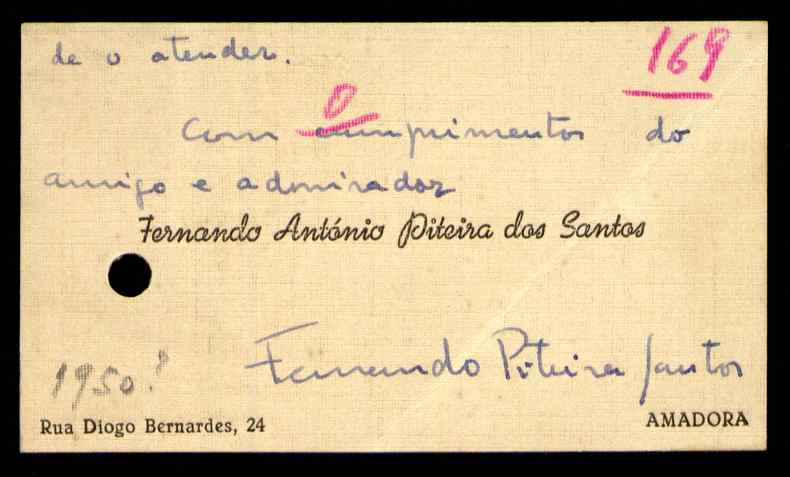 de o atender.
169
0
Com cumprimentos do
amigo e admirador
Fernando António Piteira dos Santos
Fernando Piteira Santos
1950?
Rua Diogo Bernardes, 24
AMADORA